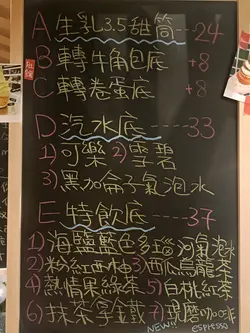 A 生乳3.5甜筒---24
B 轉牛角包底 +8
C 轉卷蛋底 +8
D 汽水底----33
1)可樂 2)雪碧
3)黑加侖子氣泡水
E 特飲底----37
1)海鹽藍色多瑙河氣泡水
2)粉紅西柚 3)西瓜烏龍茶
4)熱情果綠茶 5)白桃紅茶
6)抹茶拿鐵 7)現磨咖啡
NEW!! espresso